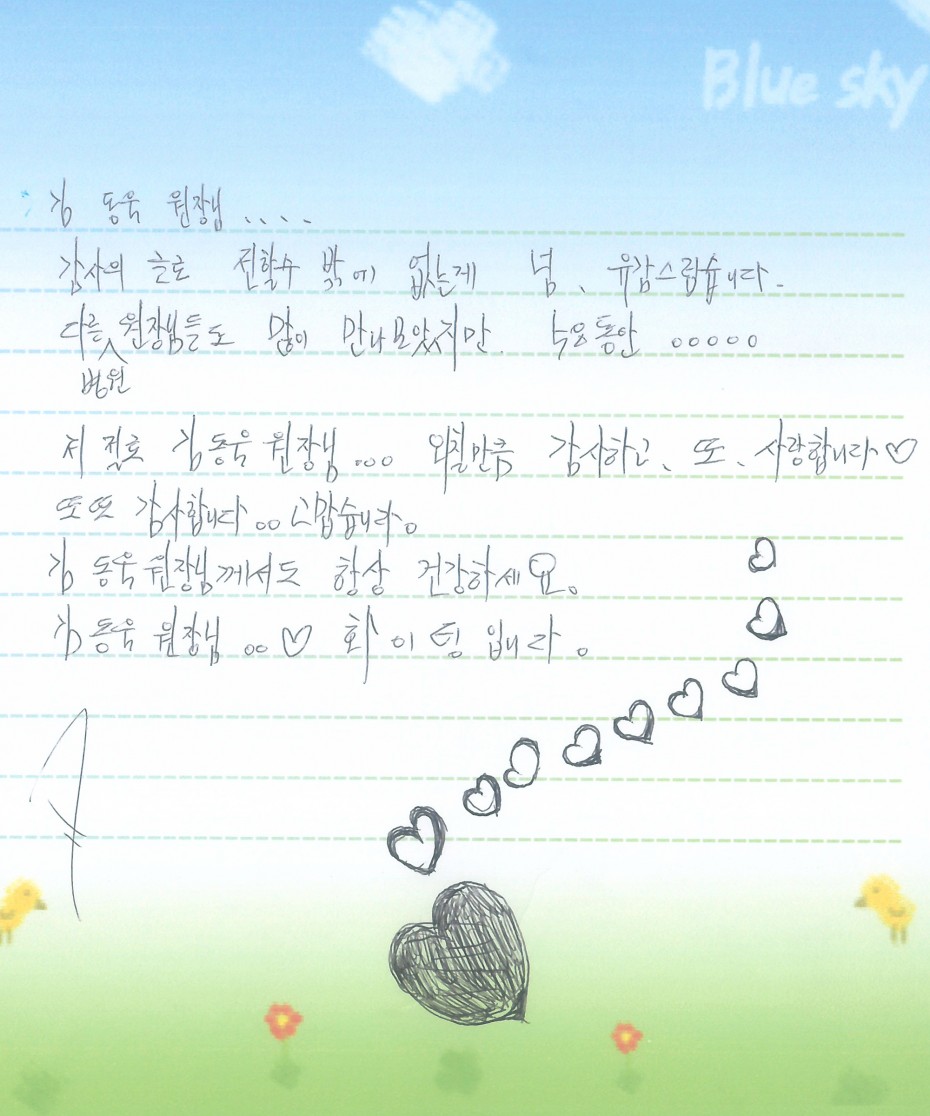 Blue sky
김 동욱 원장님 ....
감사의 글로 전할수 밖에 없는게 넘、 유감스럽습니다.
다른 병원 원장님들도 많이 만나보았지만. ooooo
저 절로 김동욱 원장님 ... 외칠만큼 감사하고、 또、 사랑합니다♡
또또 감사합니다.. 고맙습니다.
김 동욱 원장님께서도 항상 건강하세요.
김 동욱 원장님 ..♡ 화 이 팅 입니다.